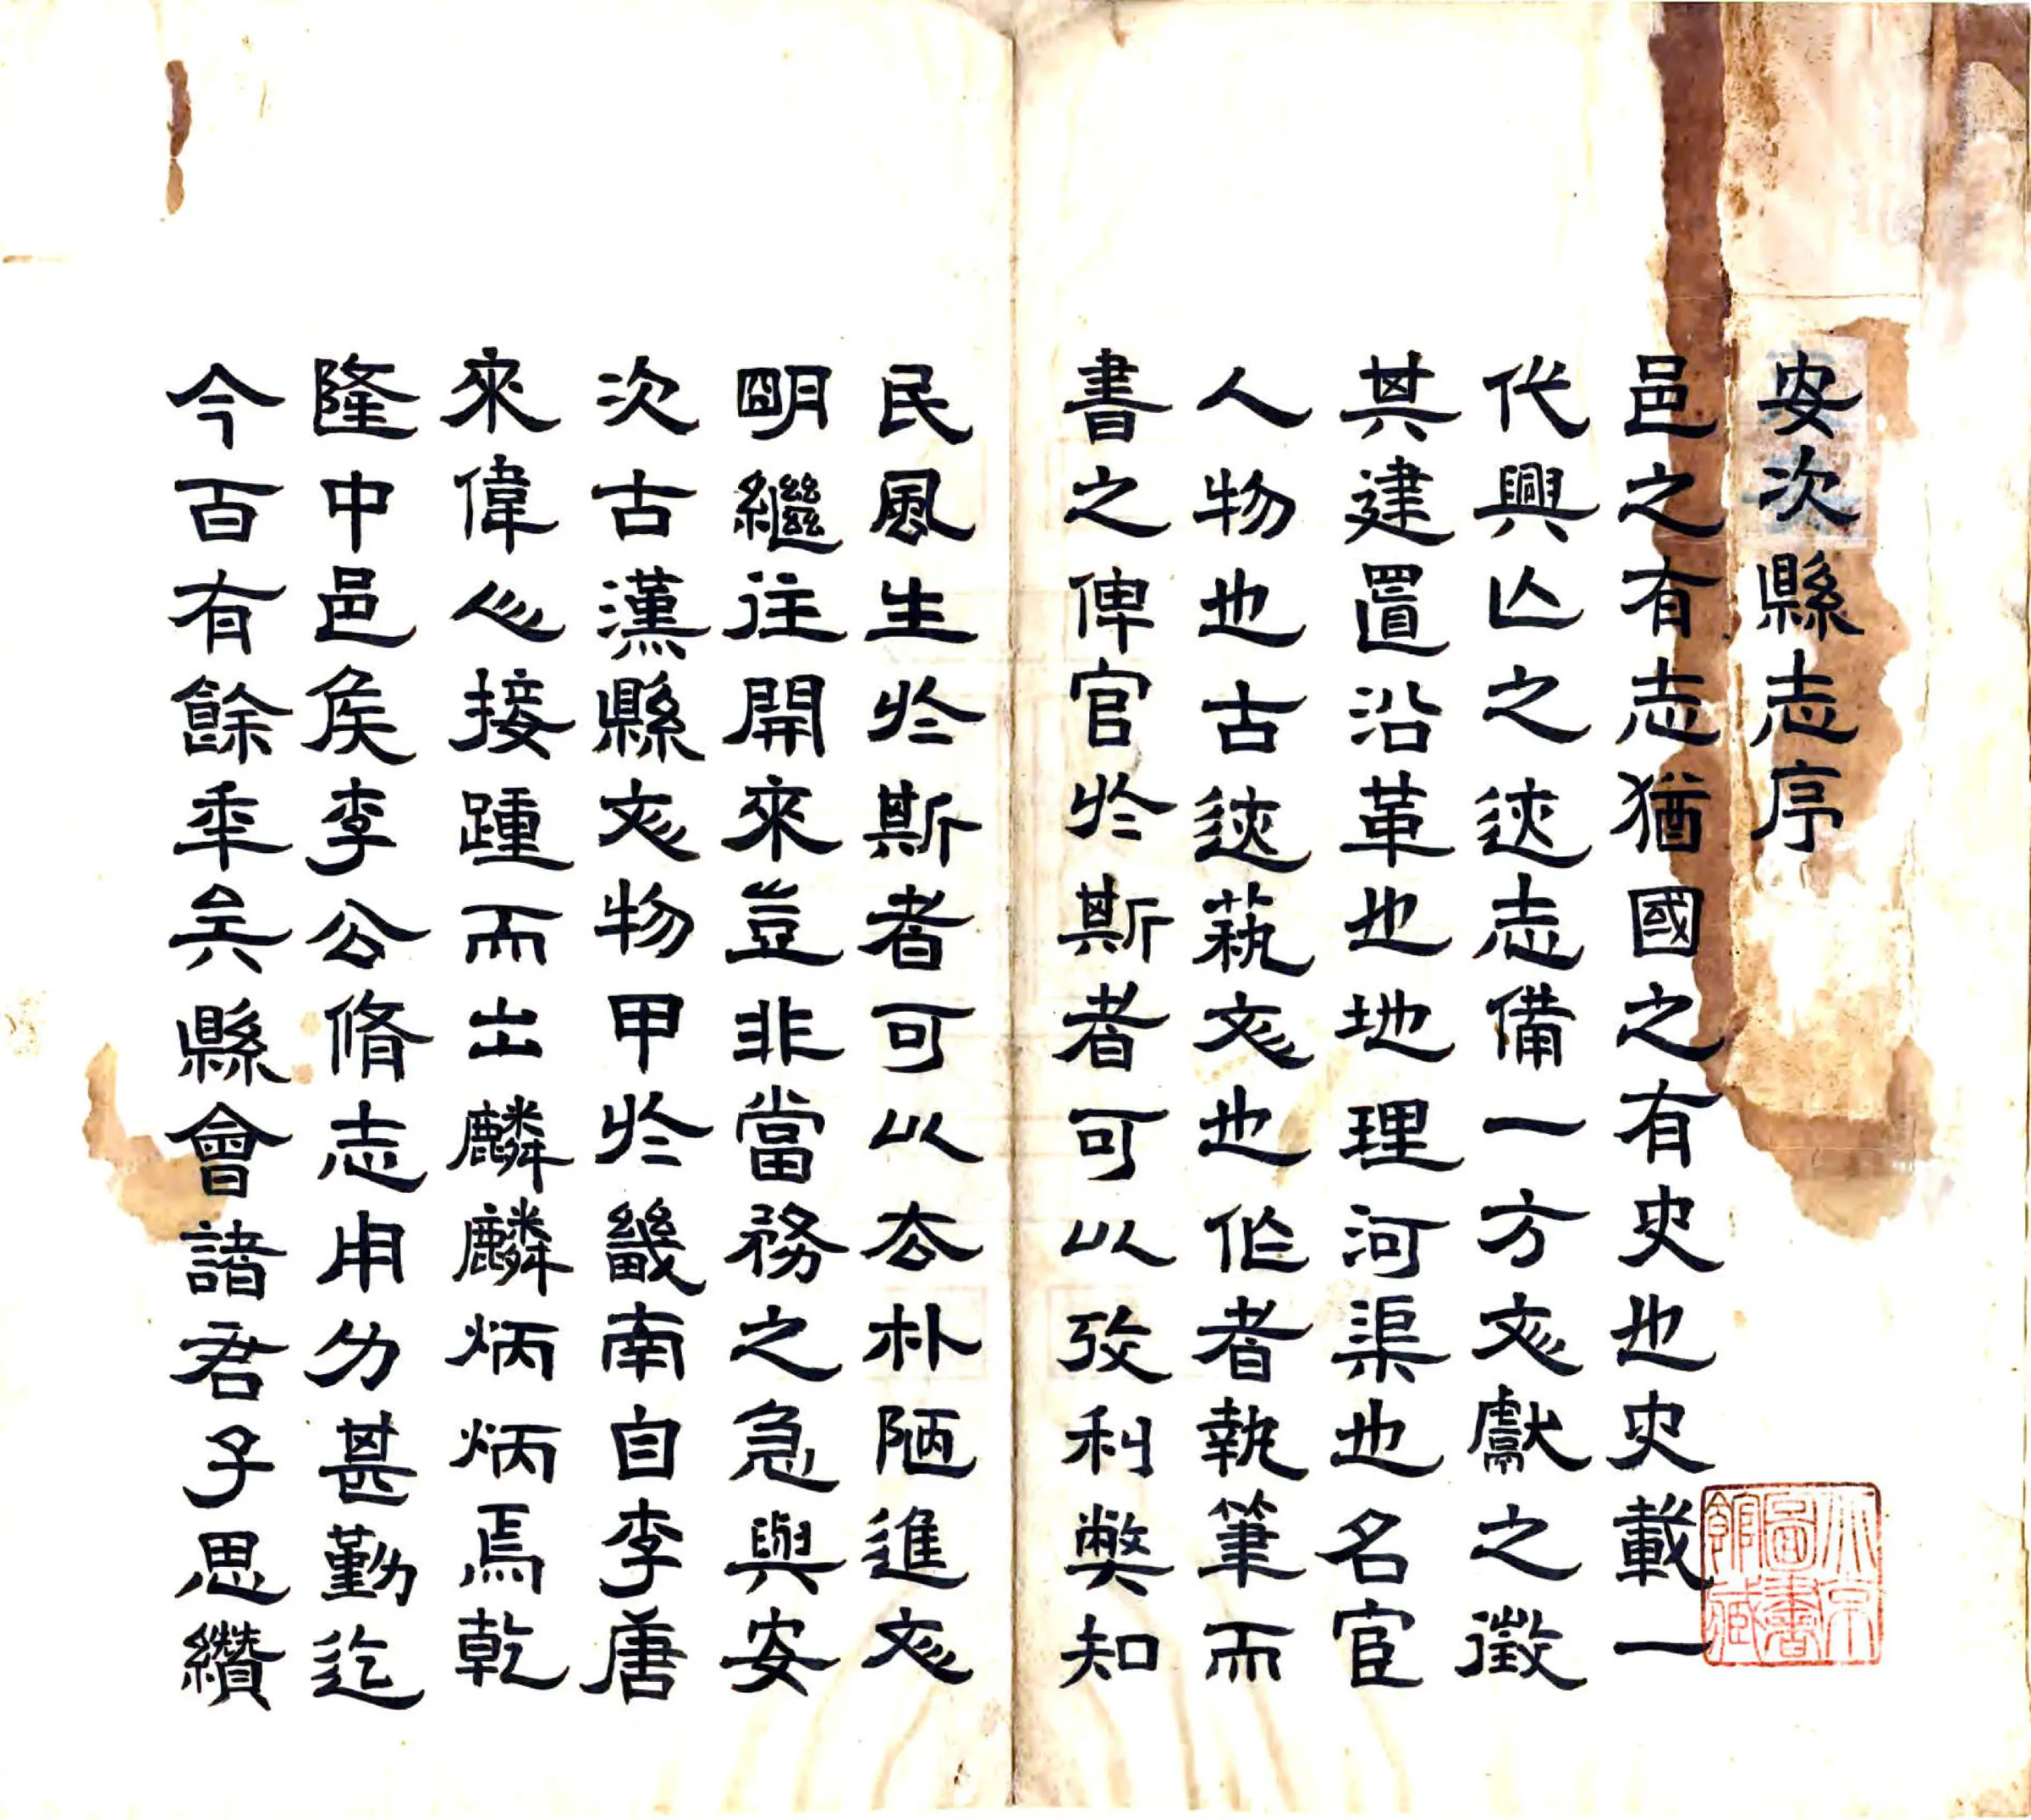 安次縣志序
邑之有志猶國之有史也史載一
代興亡之迹志備一方文獻之徵
其建置沿革也地理河渠也名宦
人物也古迹藝文也作者執筆而
書之俾官於斯者可以攷利弊知
民風生於斯者可以去朴陋進文
明繼往開來豈非當務之急與安
次古漢縣文物甲於畿南自李唐
來偉人接踵而出麟麟炳炳焉乾
隆中邑矦李公脩志用力甚勤迄
今百有餘年矣縣會諸君子思纘
北京圖書館藏